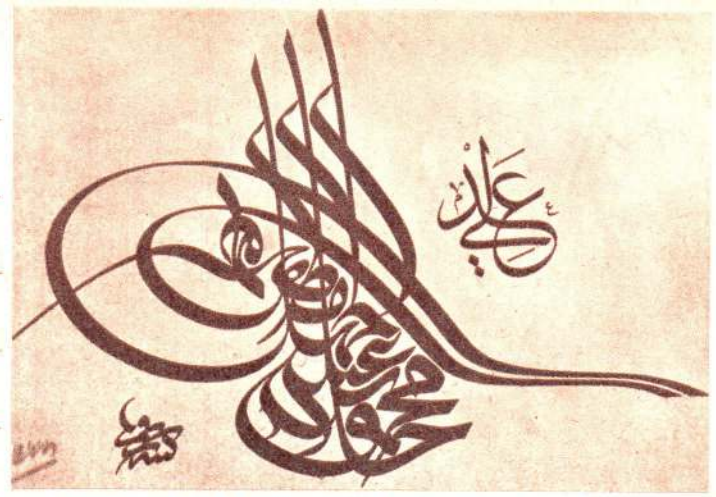 محمود خان بن عبد الحميد مظفر دائما
عدلي